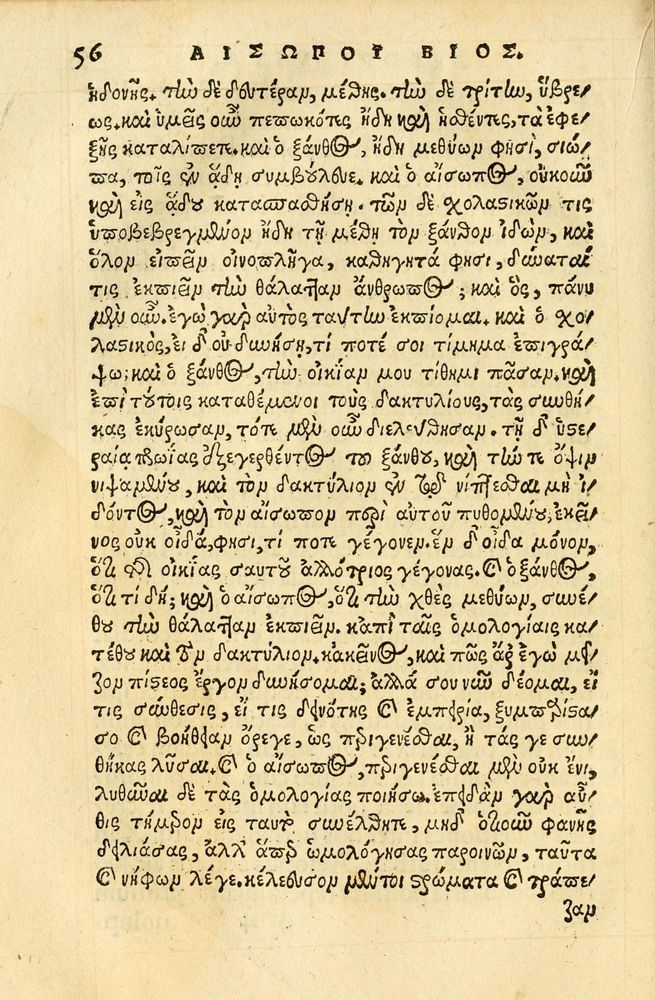 56 ΑΙΣΩΠΟΥ ΒΙΟΣ.
ἡδονῆς. τὴν δὲ δευτέραν, μέθης. τὴν δὲ τρίτην, ὕβρε/
ως. καὶ ὑμεῖς οὖν πεπωκότες ἤδη καὶ ἡσθέντες, τὰ ἐφε/
ξῆς καταλίπετε. καὶ ὁ ξάνθος, ἤδη μεθύων φησὶ, σιώ/
πα, τοῖς ἐν ᾅδῃ συμβούλευε. καὶ ὁ αἴσωπος, οὐκοῦν
καὶ εἰς ᾅδου κατασπασθήσῃ. τῶν δὲ σχολαστικῶν τις
ὑποβεβρεγμένον ἤδη τῇ μέθῃ τὸν ξάνθον ἰδὼν, καὶ
ὅλον εἰπεῖν οἰνοπλῆγα, καθηγητά φησι, δύναταί
τις ἐκπιεῖν τὴν θάλατταν ἄνθρωπος; καὶ ὃς, πάνυ
μὲν οὖν. ἐγὼ γὰρ αὐτὸς ταύτην ἐκπίομαι. καὶ ὁ σχο/
λαστικὸς, εἰ δ' οὐ δυνήσῃ, τί ποτέ σοι τίμημα ἐπιγρά/
ψω; καὶ ὁ ξάνθος, τὴν οἰκίαν μου τίθημι πᾶσαν. καὶ
ἐπὶ τούτοις καταθέμενοι τοὺς δακτυλίους, τὰς συνθή/
κας ἐκύρωσαν, τότε μὲν οὖν διελύθησαν. τῇ δ' ὑστε/
ραίᾳ πρωΐας ἐξεγερθέντος τοῦ ξάνθου, καὶ τήν τε ὄψιν
νιψαμένου, καὶ τὸν δακτύλιον ἐν τῷ νίπτεσθαι μὴ ἰ/
δόντος, καὶ τὸν αἴσωπον περὶ αὐτοῦ πυθομένου, ἐκεῖ/
νος οὐκ οἶδα, φησι, τί ποτε γέγονεν. ἓν δ' οἶδα μόνον,
ὅτι τῆς οἰκίας σαυτοῦ ἀλλότριος γέγονας. καὶ ὁ ξάνθος,
ὅτι τί δή; καὶ ὁ αἴσωπος, ὅτι τὴν χθὲς μεθύων, συνέ/
θου τὴν θάλατταν ἐκπιεῖν. κἀπὶ ταῖς ὁμολογίαις κα/
τέθου καὶ τὸν δακτύλιον. κἀκεῖνος, καὶ πῶς ἄρ' ἐγὼ μεῖ/
ζον πίστεος ἔργον δυνήσομαι; ἀλλά σου νῦν δέομαι, εἴ
τις σύνθεσις, εἴ τις δεινότης καὶ ἐμπειρία, ξυμπόρισα/
σο καὶ βοήθειαν ὄρεγε, ὡς περιγενέσθαι, ἢ τάς γε συν/
θήκας λῦσαι. καὶ ὁ αἴσωπος, περιγενέσθαι μὲν οὐκ ἔνι,
λυθῆναι δὲ τὰς ὁμολογίας ποιήσω. ἐπειδὰν γὰρ αὖ/
θις τήμερον εἰς ταυτὸ συνέλθητε, μηδ' ὁτιοῦν φανῇς
δειλιάσας, ἀλλ' ἅπερ ὡμολόγησας παροινῶν, ταῦτα
καὶ νήφων λέγε. κέλευσον μέντοι στρώματα καὶ τράπε/
ζαν